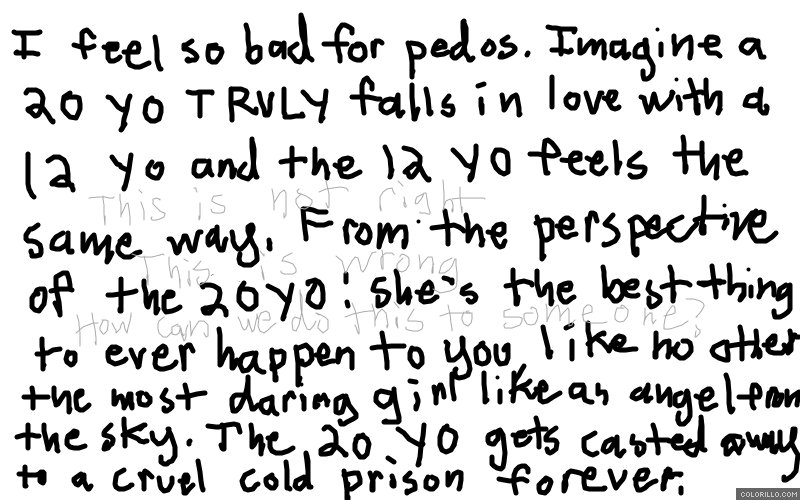 I feel so bad for pedos. Imagine a
20 yo TRULY falls in love with a
12 yo and the 12 yo feels the
This is not right
same way. From the perspective
This is wrong
of the 20 yo: she's the best thing
How can we do this to someone?
to ever happen to you like no other
the most daring girl like an angel from
the sky. The 20 yo gets casted away
to a cruel cold prison forever.
COLORILLO.COM